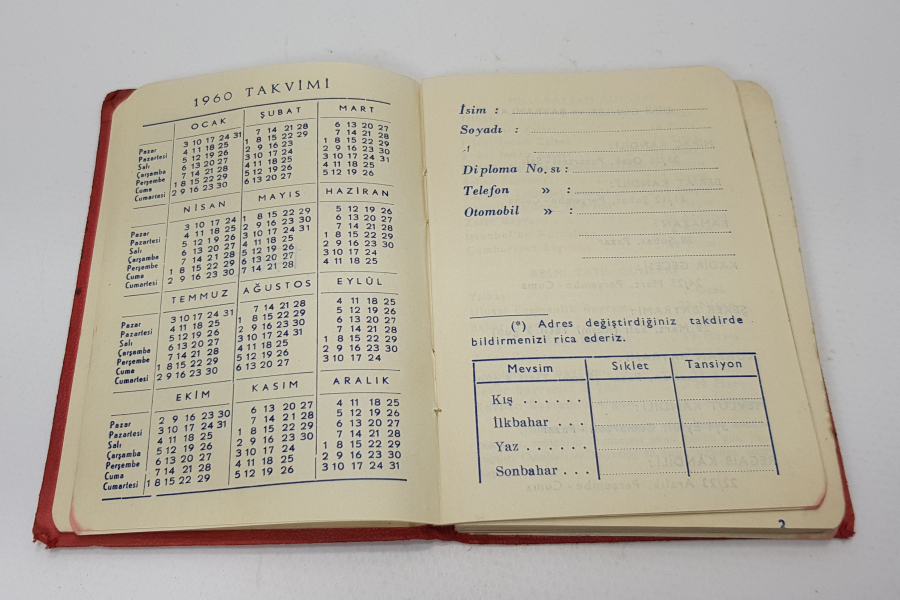 1960 TAKVİMİ
OCAK ŞUBAT MART
Pazar 3 10 17 24 31 7 14 21 28 6 13 20 27
Pazartesi 4 11 18 25 1 8 15 22 29 7 14 21 28
Salı 5 12 19 26 2 9 16 23 1 8 15 22 29
Çarşamba 6 13 20 27 3 10 17 24 2 9 16 23 30
Perşembe 7 14 21 28 4 11 18 25 3 10 17 24 31
Cuma 1 8 15 22 29 5 12 19 26 4 11 18 25
Cumartesi 2 9 16 23 30 6 13 20 27 5 12 19 26
NİSAN MAYIS HAZİRAN
Pazar 3 10 17 24 1 8 15 22 29 5 12 19 26
Pazartesi 4 11 18 25 2 9 16 23 30 6 13 20 27
Salı 5 12 19 26 3 10 17 24 31 7 14 21 28
Çarşamba 6 13 20 27 4 11 18 25 1 8 15 22 29
Perşembe 7 14 21 28 5 12 19 26 2 9 16 23 30
Cuma 1 8 15 22 29 6 13 20 27 3 10 17 24
Cumartesi 2 9 16 23 30 7 14 21 28 4 11 18 25
TEMMUZ AĞUSTOS EYLÛL
Pazar 3 10 17 24 31 7 14 21 28 4 11 18 25
Pazartesi 4 11 18 25 1 8 15 22 29 5 12 19 26
Salı 5 12 19 26 2 9 16 23 30 6 13 20 27
Çarşamba 6 13 20 27 3 10 17 24 31 7 14 21 28
Perşembe 7 14 21 28 4 11 18 25 1 8 15 22 29
Cuma 1 8 15 22 29 5 12 19 26 2 9 16 23 30
Cumartesi 2 9 16 23 30 6 13 20 27 3 10 17 24
EKİM KASIM ARALIK
Pazar 2 9 16 23 30 6 13 20 27 4 11 18 25
Pazartesi 3 10 17 24 31 7 14 21 28 5 12 19 26
Salı 4 11 18 25 1 8 15 22 29 6 13 20 27
Çarşamba 5 12 19 26 2 9 16 23 30 7 14 21 28
Perşembe 6 13 20 27 3 10 17 24 1 8 15 22 29
Cuma 7 14 21 28 4 11 18 25 2 9 16 23 30
Cumartesi 1 8 15 22 29 5 12 19 26 3 10 17 24 31
İsim :
Soyadı :
Diploma No. sı :
Telefon » :
Otomobil » :
(*) Adres değiştirdiğiniz takdirde
bildirmenizi rica ederiz.
Mevsim Sıklet Tansiyon
Kış . . . . . .
İlkbahar . . .
Yaz . . . . . .
Sonbahar . . .